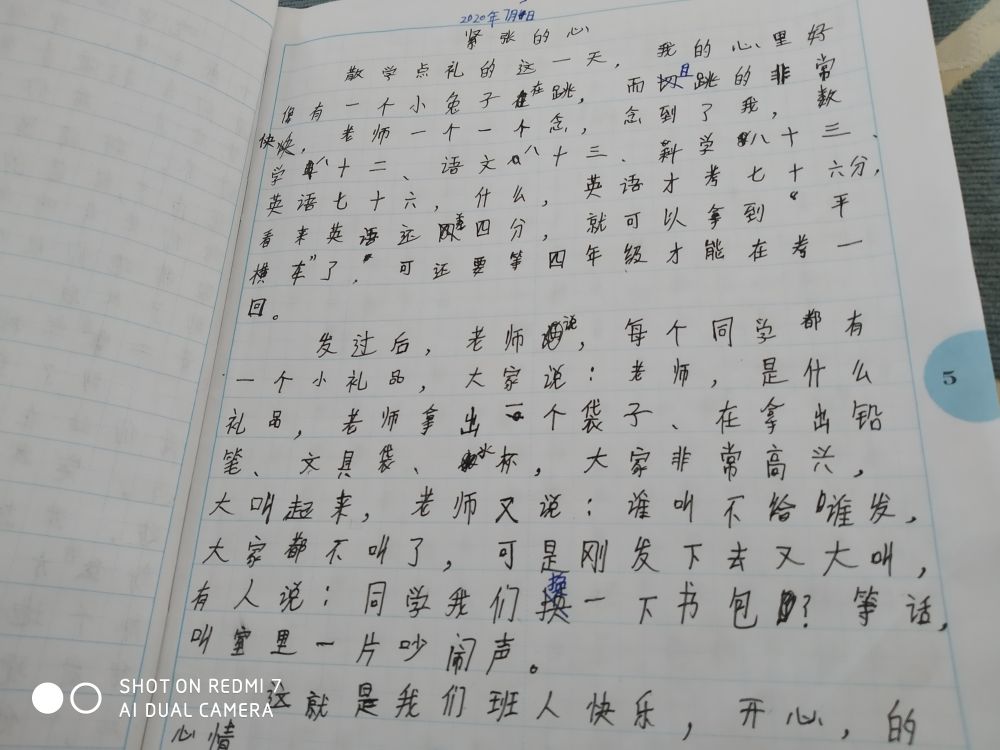 2020年7月4日
紧张的心
散学点礼的这一天，我的心里好
像有一个小兔子在跳，而且跳的非常
快快，老师一个一个念，念到了我，数
学八十二、语文八十三、科学八十三、
英语七十六，什么，英语才考七十六分，
看来英语还差四分，就可以拿到“平
横车”了，可还要等四年级才能在考一
回。
发过后，老师说，每个同学都有
一个小礼品，大家说：老师，是什么
礼品，老师拿出一个袋子、在拿出铅
笔、文具袋、水杯，大家非常高兴，
大叫起来，老师又说：谁叫不给谁发，
大家都不叫了，可是刚发下去又大叫，
有人说：同学我们换一下书包？等话，
叫室里一片吵闹声。
这就是我们班人快乐，开心，的
心情
5
SHOT ON REDMI 7
AI DUAL CAMERA